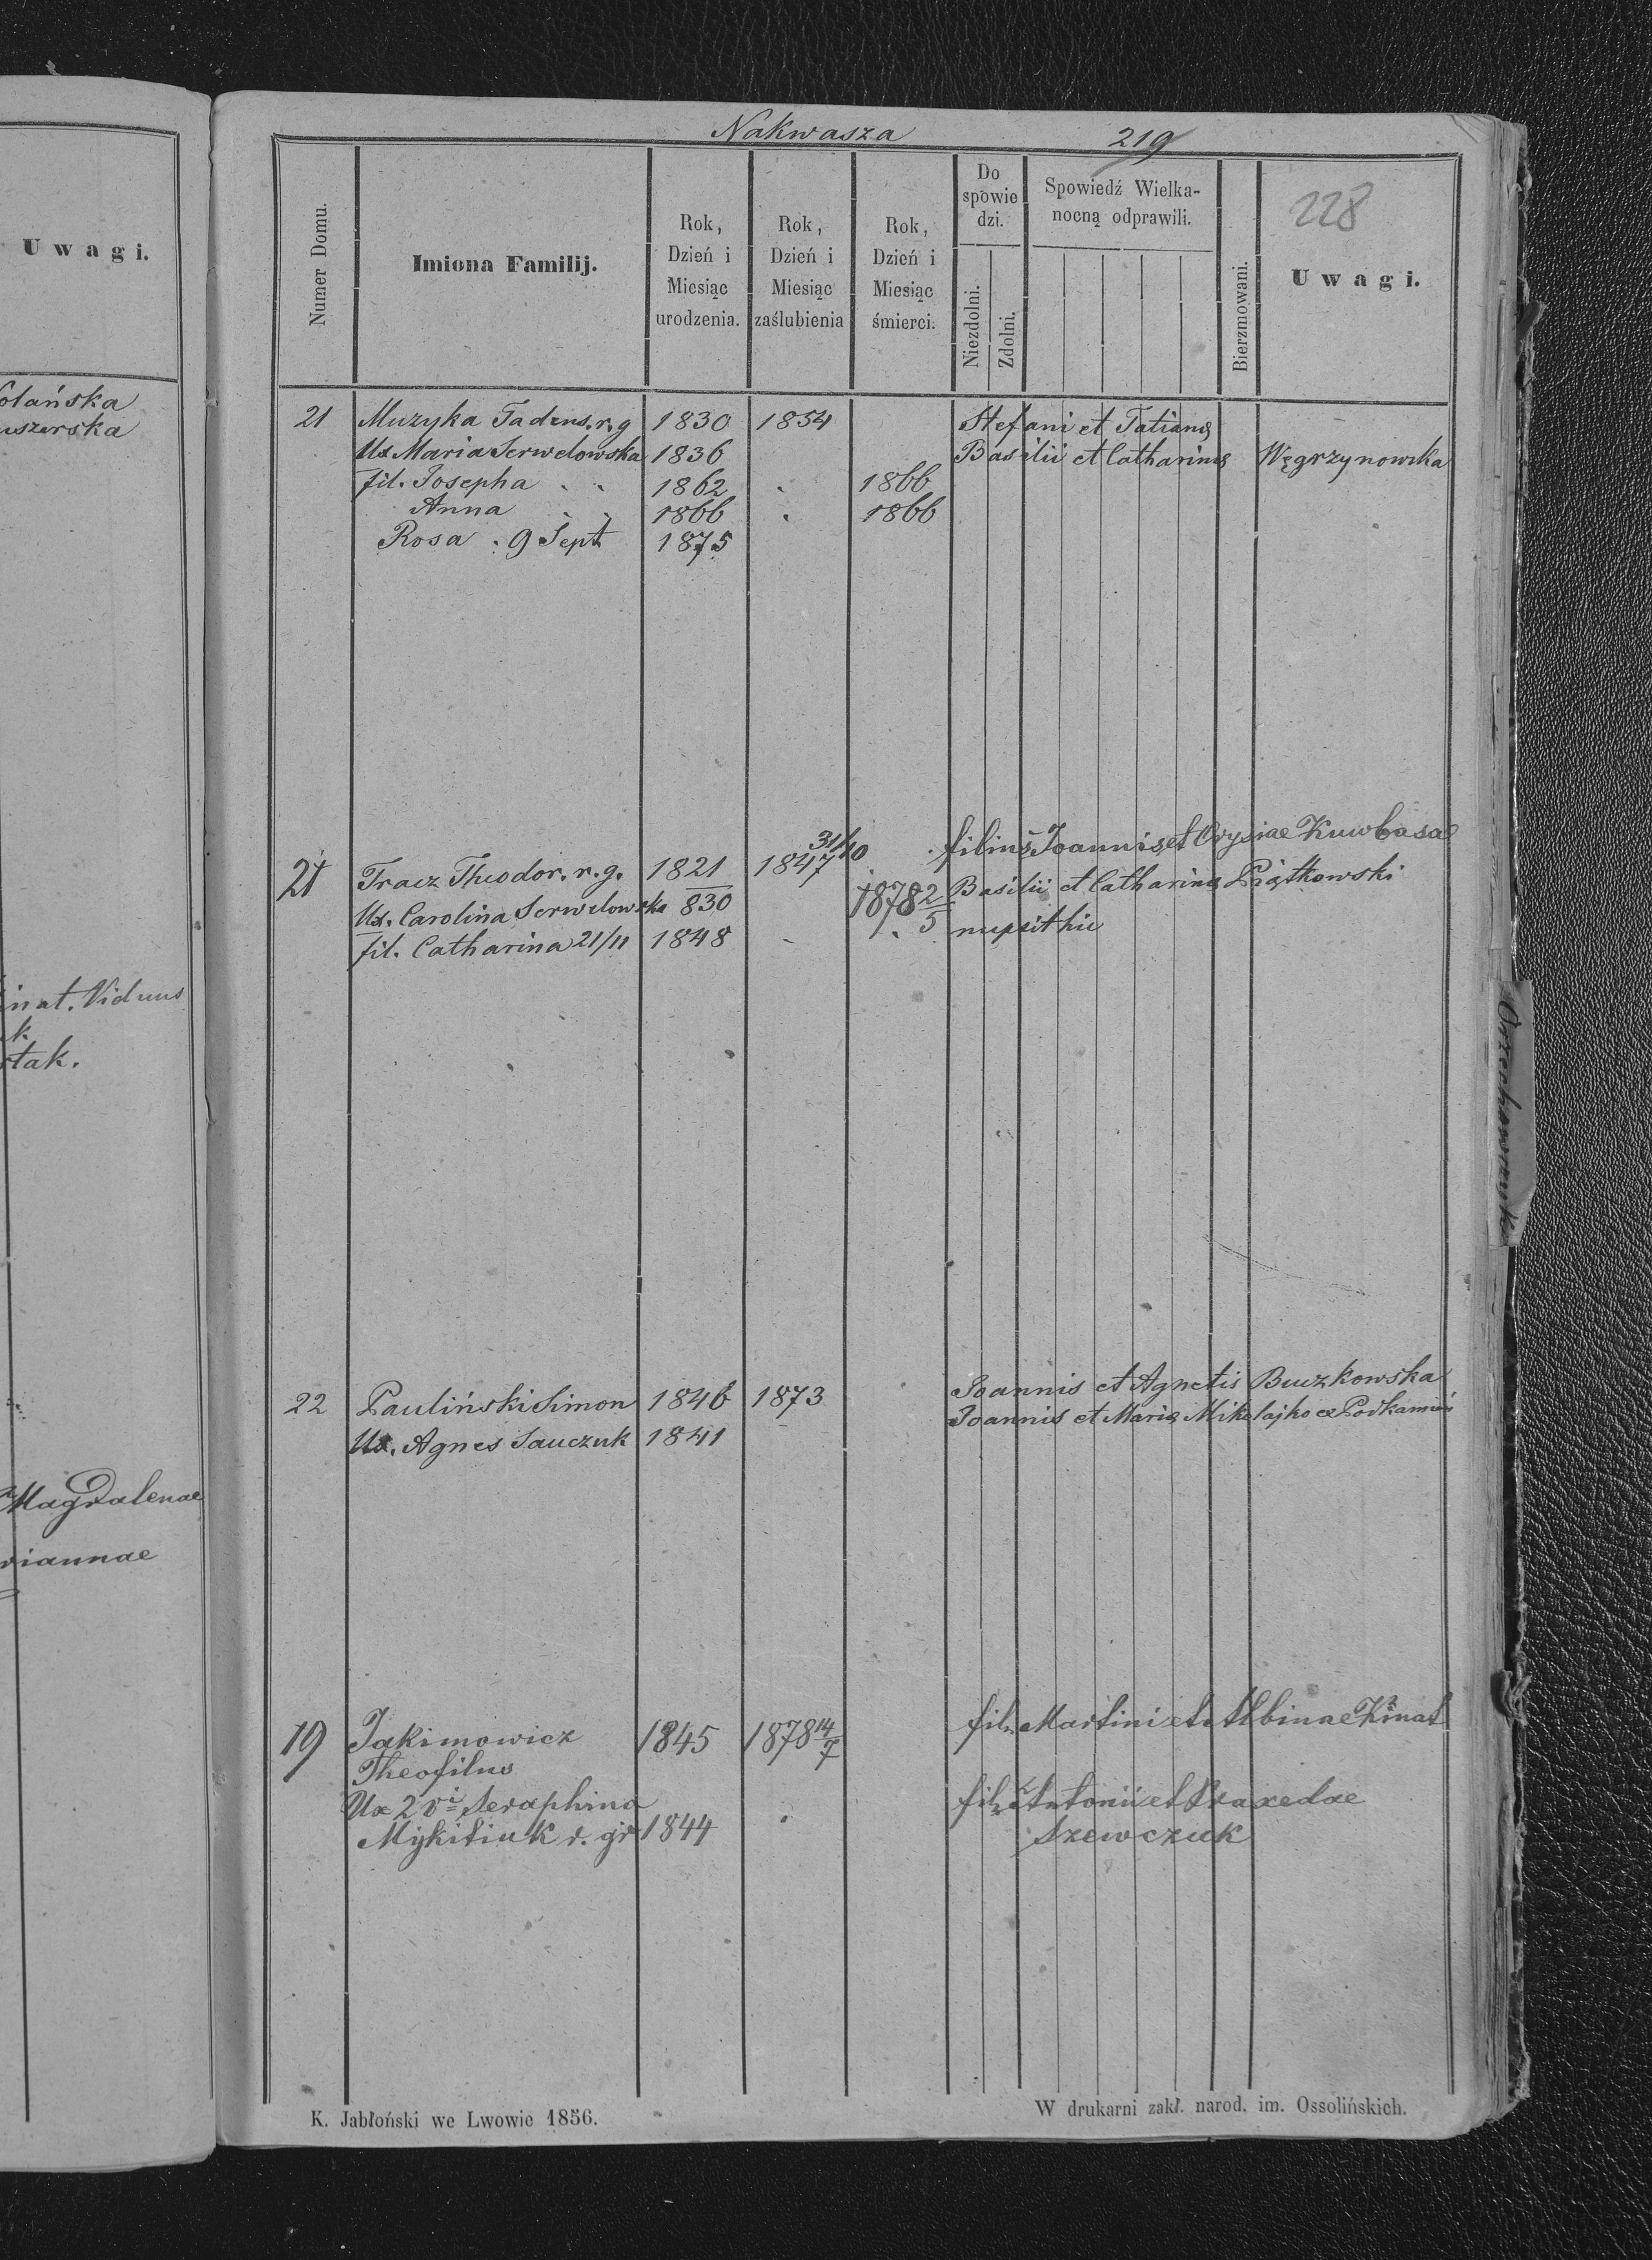 Uwagi.
olańska
uszerska
inat. Viduus
k.
stak.
Magdalenae
riannae
Nakwasza 219
228
Numer Domu.
Imiona Familij.
Rok, Dzień i Miesiąc urodzenia.
Rok, Dzień i Miesiąc zaślubienia
Rok, Dzień i Miesiąc śmierci.
Do spowiedzi.
Niezdolni.
Zdolni.
Spowiedź Wielkanocną odprawili.
Bierzmowani.
Uwagi.
21 Muzyka Tadeus. r. g 1830 1854 Stefani et Tatianę
Ux Maria Serwelowska 1836 Basilii et Catharinę Węgrzynowska
fil. Josepha 1862 1866
Anna 1866 1866
Rosa 9 Sept 1875
21 Tracz Theodor. r. g. 1821 1847 31/10 filius Joannis et Orysiae Kuwbasa
Ux. Carolina Serwelowska 830 1878 2/5 Basilii et Catharinę Piątkowski
fil. Catharina 21/11 1848 nupsit hic
22 Pauliński Simon 1846 1873 Joannis et Agnetis Buczkowska
Ux. Agnes Sauczuk 1841 Joannis et Marię Mikolajko ex Podkamień
19 Jakimowicz 1845 1878 14/7 fil. Martini et Albinae Kinat
Theofilus
Ux 2 vi Seraphina fil. Antonii et Praxedae
Mykitiuk r. gr 1844 Szewczuk
K. Jabłoński we Lwowie 1856.
W drukarni zakł. narod. im. Ossolińskich.